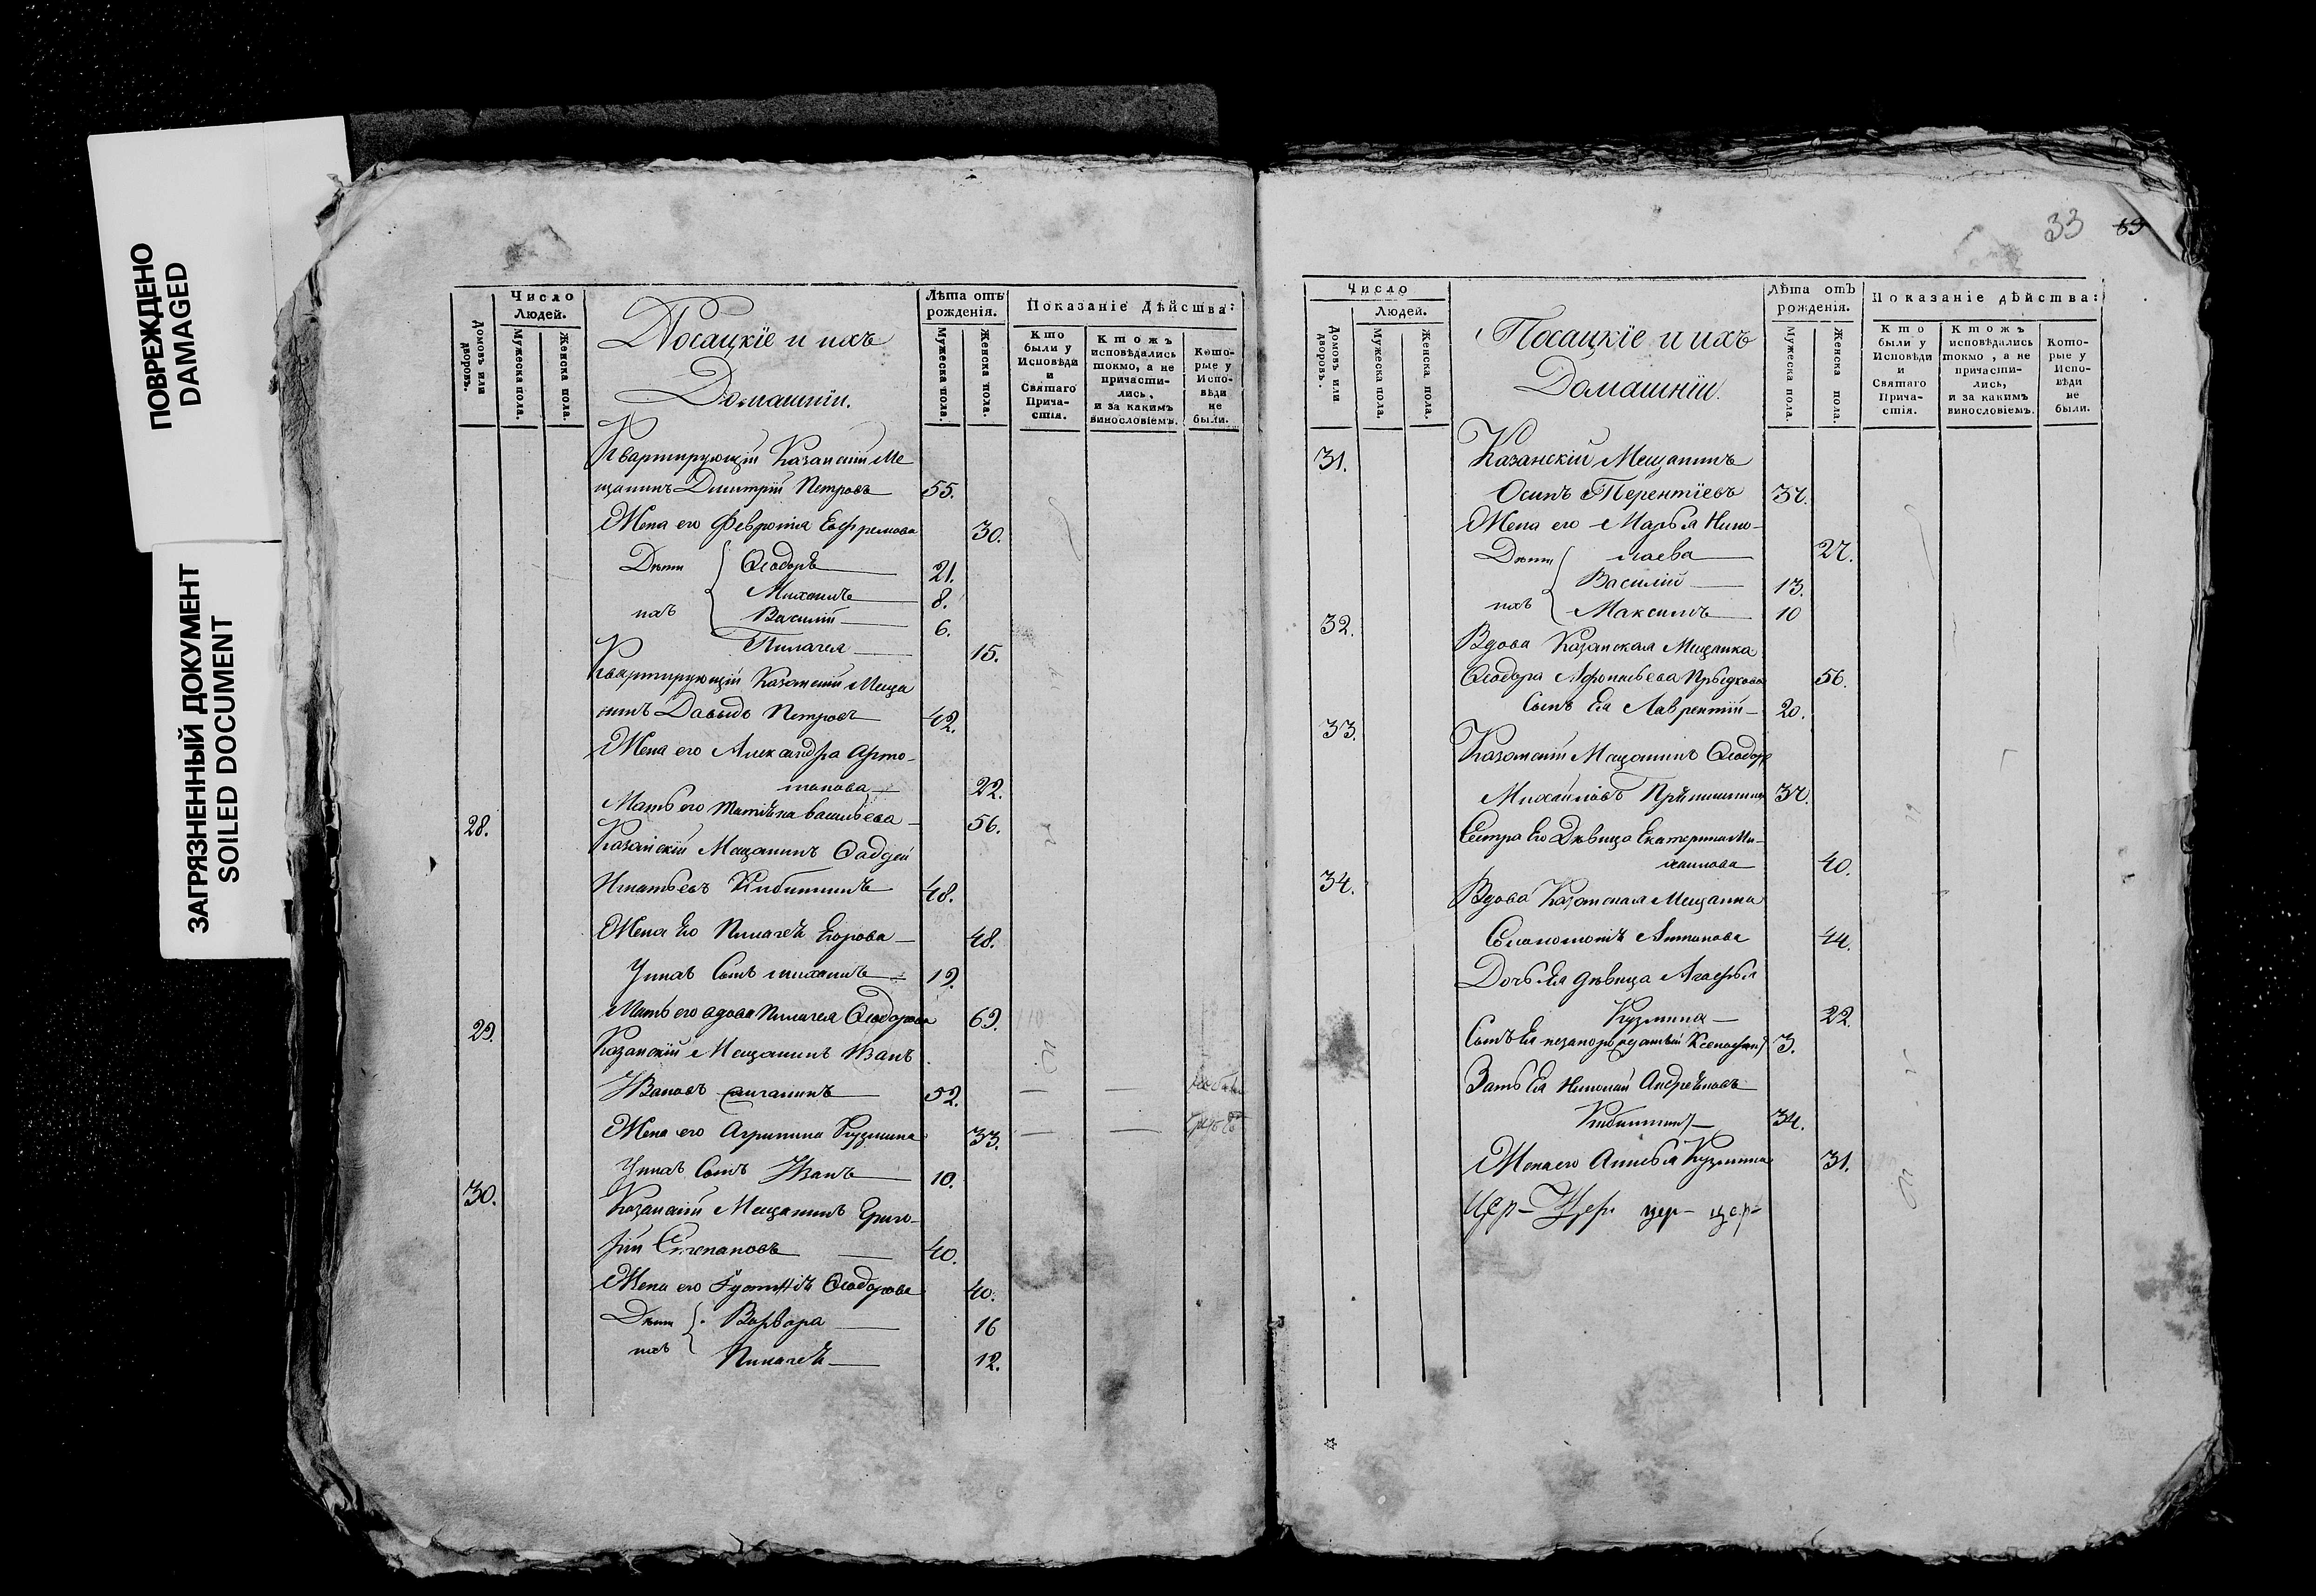 ПОВРЕЖДЕНО
DAMAGED
ЗАГРЯЗНЕННЫЙ ДОКУМЕНТ
SOILED DOCUMENT
Домовъ или дворовъ.
Число Людей.
Мужеска пола.
Женска пола.
Посацкіе и ихъ
Домашніи.
Лѣта отъ рожденія.
Мужеска пола.
Женска пола.
Показаніе Дѣйства:
Кто были у Исповѣди и Святаго Причастія.
Ктожъ исповѣдались токмо, а не причастились, и за какимъ винословіемъ.
Которые у Исповѣди не были.
Квартирующій Казанскій Ме
щанинъ Дмитрій Петровъ 55.
Жена его Феврония Ефремова 30.
Дѣти Ѳеодоръ 21.
Михаилъ 8.
ихъ Василій 6.
Пилагея 15.
Квартирующій Казанскій Меща
нинъ Давыдъ Петровъ 42.
Жена его Александра Арто-
монова 22.
Мать его Васильева 56.
28. Казанскій Мещанинъ Фаддей
Игнатьевъ Кибиткинъ 48.
Жена Его Пилагеѣ Егорова 48.
Унихъ Сынъ михаилъ 19.
Мать его вдова Пилагея Ѳеодорова 69.
29. Казанскій Мещанинъ Иванъ
Ивановъ 52.
Жена его Агрипина Кузмина 33.
Унихъ Сынъ Иванъ 10.
30. Казанскій Мещанинъ Григо-
рій Степановъ 40.
Жена его Ѳеодорова 40.
Дѣти Варвара 16
ихъ Пилагеѣ 12.
33 69
Домовъ или дворовъ.
Число Людей.
Мужеска пола.
Женска пола.
Посацкіе и ихъ
Домашніи.
Лѣта отъ рожденія.
Мужеска пола.
Женска пола.
Показаніе дѣйства:
Кто были у Исповѣди и Святаго Причастія.
Ктожъ исповѣдались токмо, а не причастились, и за какимъ винословіемъ.
Которые у Исповѣди не были.
31. Казанскій Мещанинъ
Осипъ Терентіевъ 37.
Жена его Марья Нико-
Дѣти лаева 27.
Василій 13.
ихъ Максимъ 10
32. Вдова Казанская Мещанка
Ѳеодора Афонасьева 56.
Сынъ Ея Лаврентій 20.
33. Казанскій Мещанинъ Ѳеодоръ
Михайловъ 37.
Сестра Его Дѣвица Екатерина Ми-
хаилова 40.
34. Вдова Казанская Мещанка
Антонова 44.
Дочь Ея дѣвица Агафья
Кузмина 22.
Сынъ Ея незаконорожденный 3.
Зать Ея Николай Андреяновъ
Кибиткинъ 34.
Жена его Анисья Кузмина 31.
Цер- Цер. цер- цер-